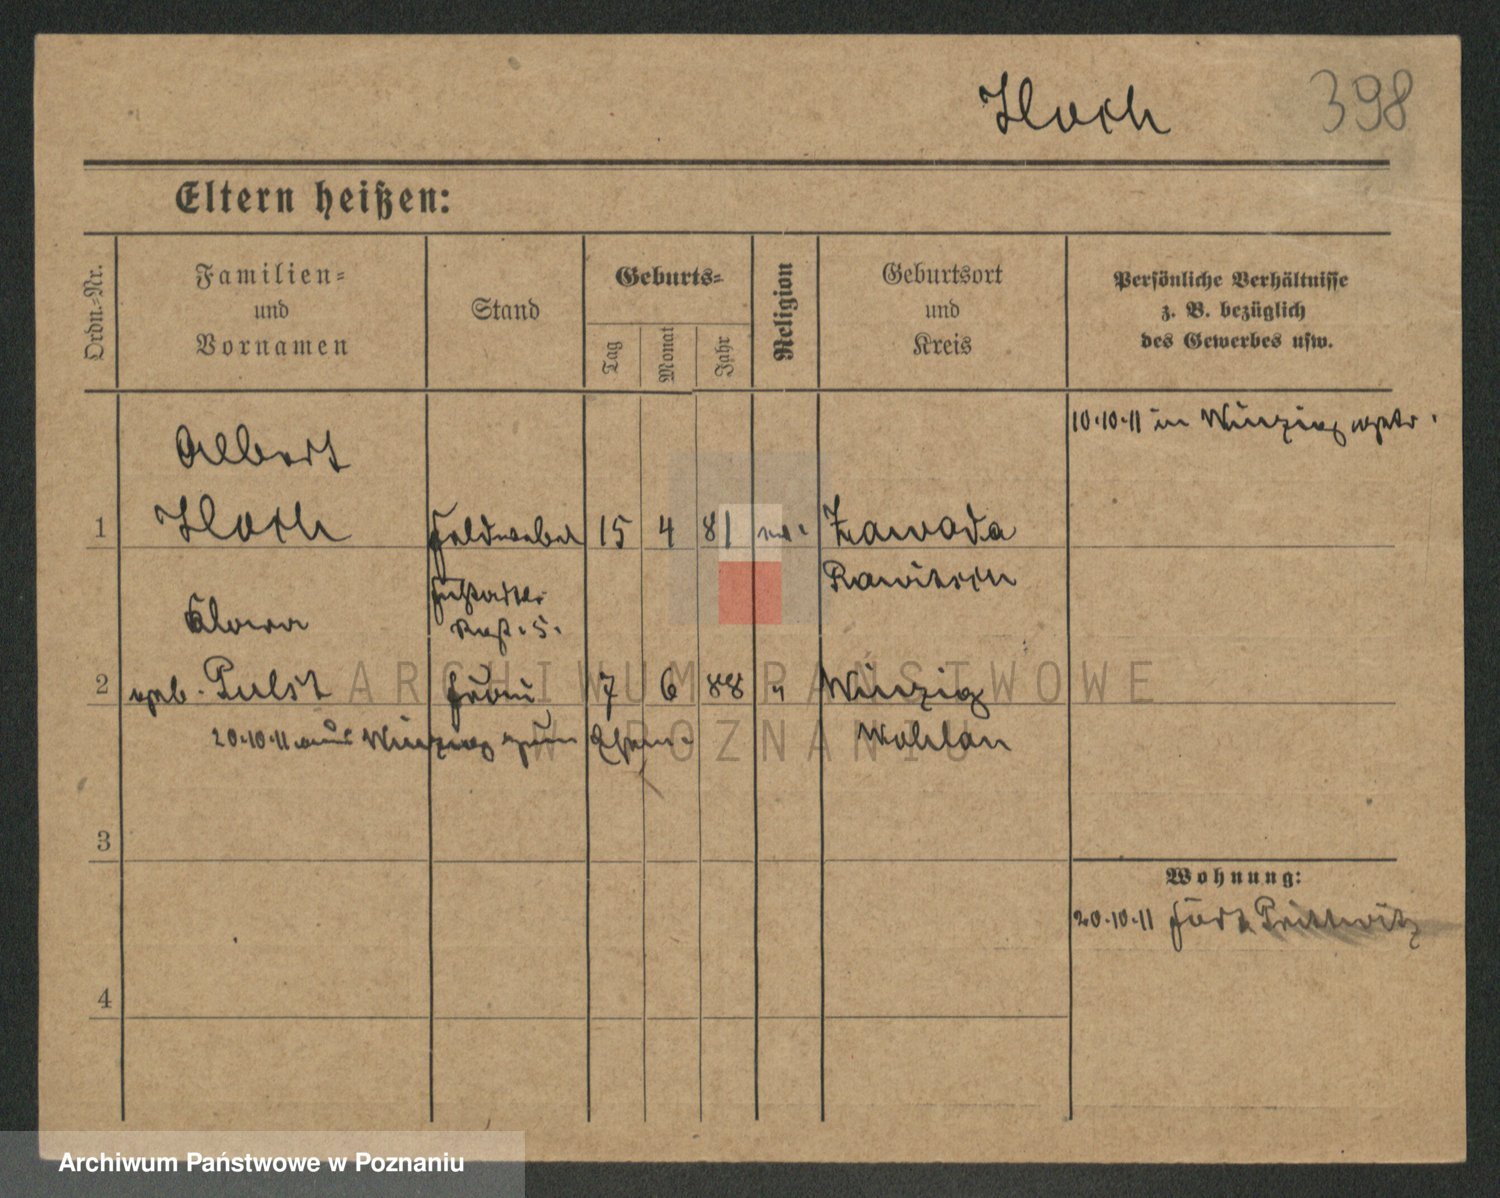 Hoch 398
Eltern heißen:
Ordn.-Nr.
Familien-
und
Vornamen
Stand
Geburts-
Tag
Monat
Jahr
Religion
Geburtsort
und
Kreis
Persönliche Verhältnisse
z. B. bezüglich
des Gewerbes usw.
10.10.11 in Winzig
Albert
1 Hoch Feldwebel 15 4 81 Zawada
Rawitsch
Clara
Regt. 5.
2 geb. Pulst Frau 7 6 88 " Winzig
20.10.11 aus Winzig zum Ehem. Wohlau
3
Wohnung:
20.10.11 Fort Prittwitz
4
ARCHIWUM PAŃSTWOWE
W POZNANIU
Archiwum Państwowe w Poznaniu